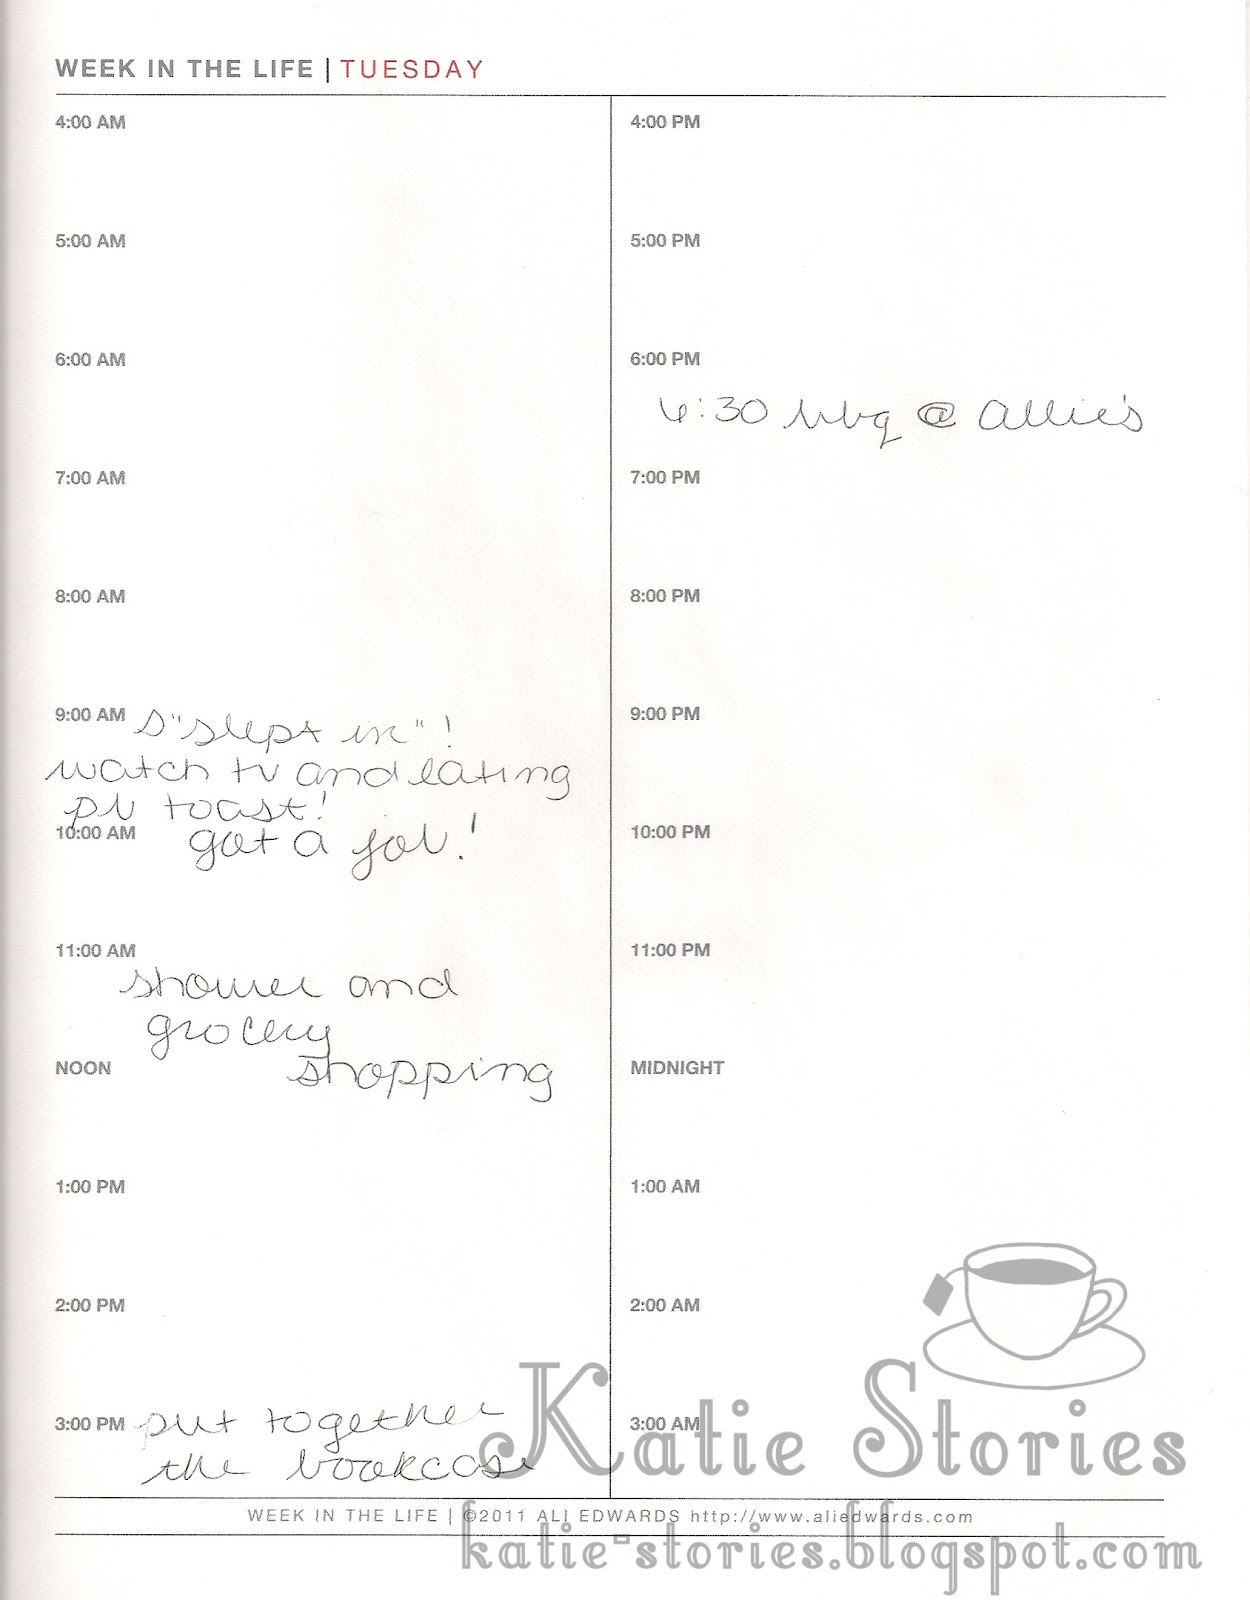 WEEK IN THE LIFE | TUESDAY
4:00 AM
5:00 AM
6:00 AM
7:00 AM
8:00 AM
9:00 AM S "slept in"!
watch tv and eating
pb toast!
10:00 AM got a job!
11:00 AM
shower and
grocery
NOON shopping
1:00 PM
2:00 PM
3:00 PM put together
the bookcase
4:00 PM
5:00 PM
6:00 PM
6:30 bbq @ allie's
7:00 PM
8:00 PM
9:00 PM
10:00 PM
11:00 PM
MIDNIGHT
1:00 AM
2:00 AM
3:00 AM
Katie Stories
WEEK IN THE LIFE | ©2011 ALI EDWARDS http://www.aliedwards.com
katie-stories.blogspot.com